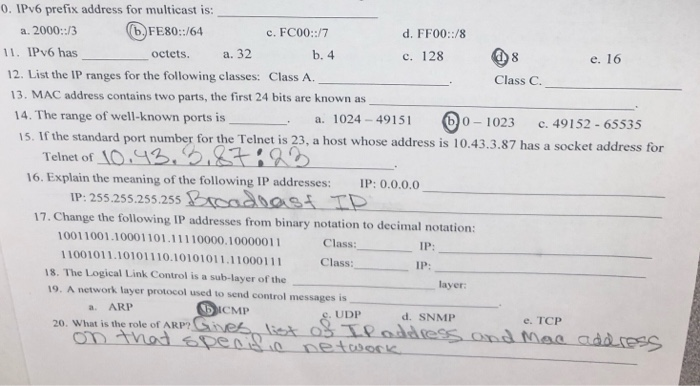 0. IPv6 prefix address for multicast is:
a. 2000::/3 b. FE80::/64 c. FC00::/7 d. FF00::/8
11. IPv6 has ______ octets. a. 32 b. 4 c. 128 d. 8 e. 16
12. List the IP ranges for the following classes: Class A. ______. Class C. ______
13. MAC address contains two parts, the first 24 bits are known as ______.
14. The range of well-known ports is ______. a. 1024 – 49151 b. 0 – 1023 c. 49152 - 65535
15. If the standard port number for the Telnet is 23, a host whose address is 10.43.3.87 has a socket address for
Telnet of 10.43.3.87:23.
16. Explain the meaning of the following IP addresses: IP: 0.0.0.0
IP: 255.255.255.255 Broadcast IP
17. Change the following IP addresses from binary notation to decimal notation:
10011001.10001101.11110000.10000011 Class: ______ IP: ______
11001011.10101110.10101011.11000111 Class: ______ IP: ______
18. The Logical Link Control is a sub-layer of the ______ layer:
19. A network layer protocol used to send control messages is ______
a. ARP b. ICMP c. UDP d. SNMP e. TCP
20. What is the role of ARP? Gives list of IP address and Mac address
on that specific network